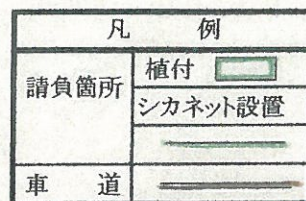 凡 例
請負箇所
植付
シカネット設置
車 道